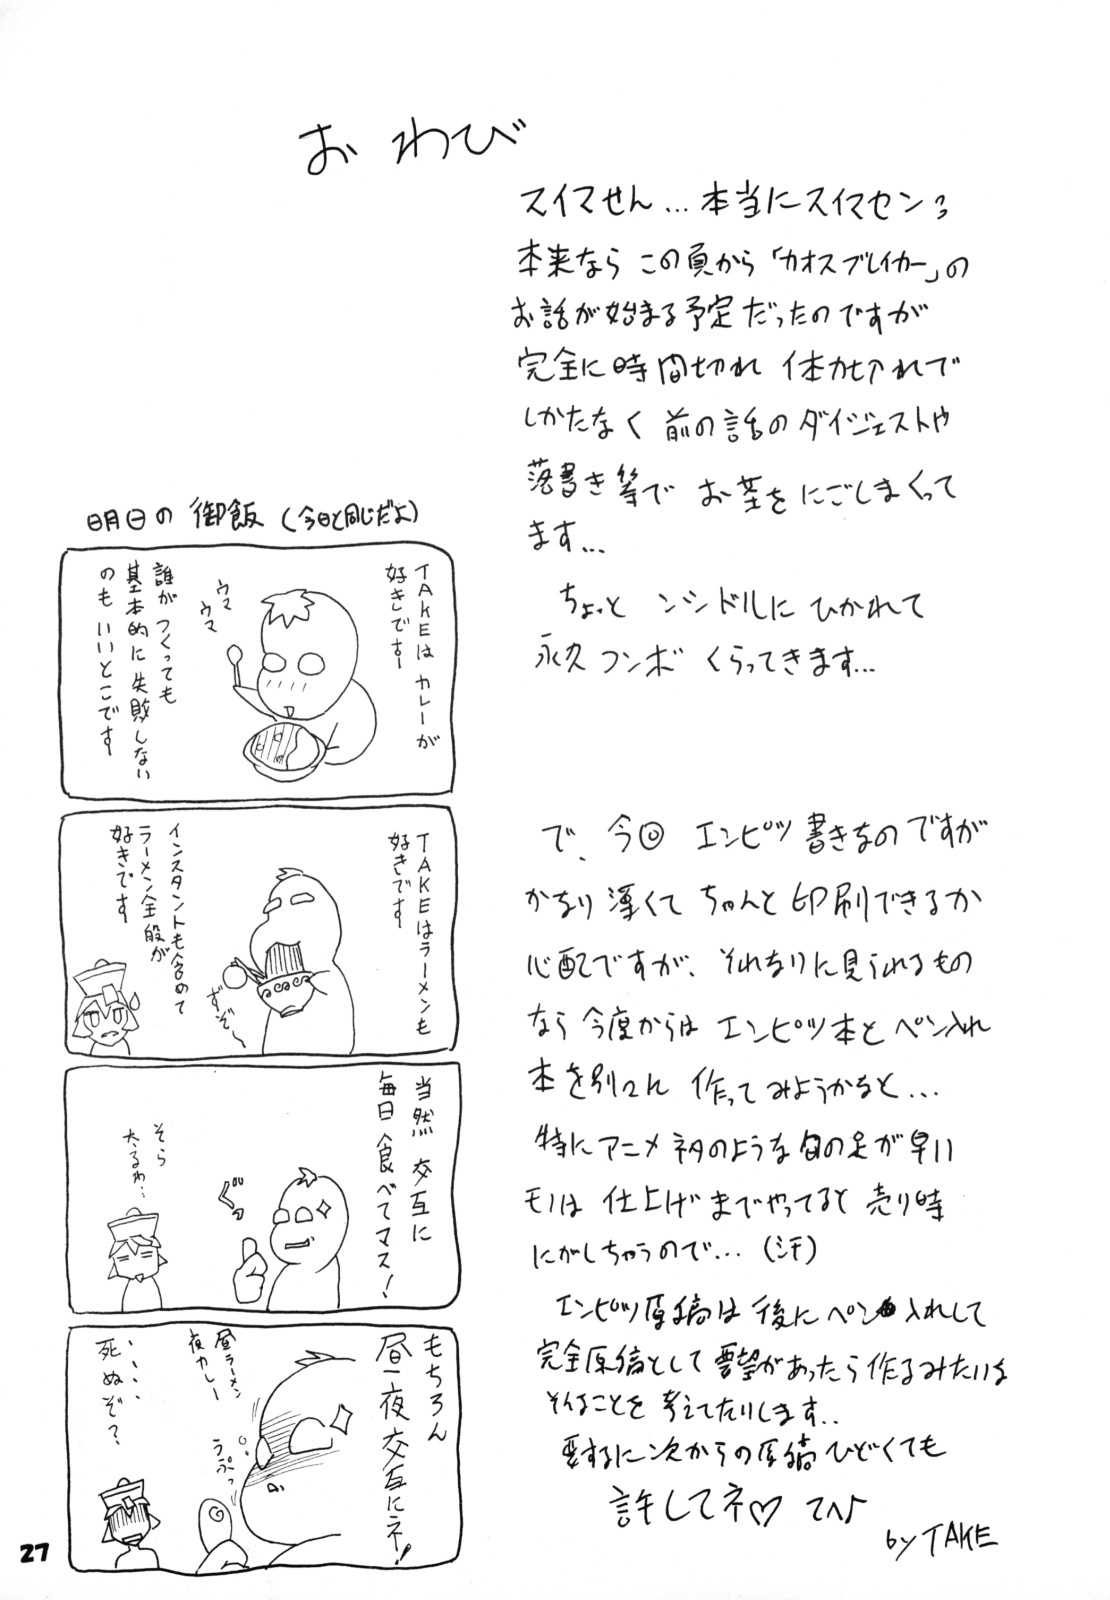 おわび
スイマせん…本当にスイマセン
本来なら この頁から「カオスブレイカー」の
お話が始まる予定だったのですが
完全に時間切れ 体力切れで
しかたなく 前の話のダイジェストや
落書き等で お茶をにごしまくって
ます…
ちょっと シンドルに ひかれて
永久コンボ くらってきます…
で、今回 エンピツ書きなのですが
かなり薄くて ちゃんと印刷できるか
心配ですが、それなりに見られるもの
なら今度からは エンピツ本と ペン入れ
本を別々に 作ってみようかなと…
特にアニメネタのような旬の足が早い
モノは 仕上げまでやってると 売り時
にがしちゃうので…(汗)
エンピツ原稿は 後にペン入れして
完全原稿として 要望があったら作るみたいな
そんなことを 考えてたりします..
要するに次からの原稿ひどくても
許してネ♡ てへ♪
by TAKE
明日の御飯(今日と同じだよ)
TAKEは カレーが
好きです
ウマ
ウマ
誰が つくっても
基本的に 失敗しない
のも いいとこです
TAKEはラーメンも
好きです
ずぞ〜
インスタントも含めて
ラーメン全般が
好きです
当然 交互に
毎日 食べてマス!
ぐっ
そら
太るわ…
もちろん
昼夜交互にネ!
昼ラーメン
夜カレー
うぷっ
・・・・
死ぬぞ?
27